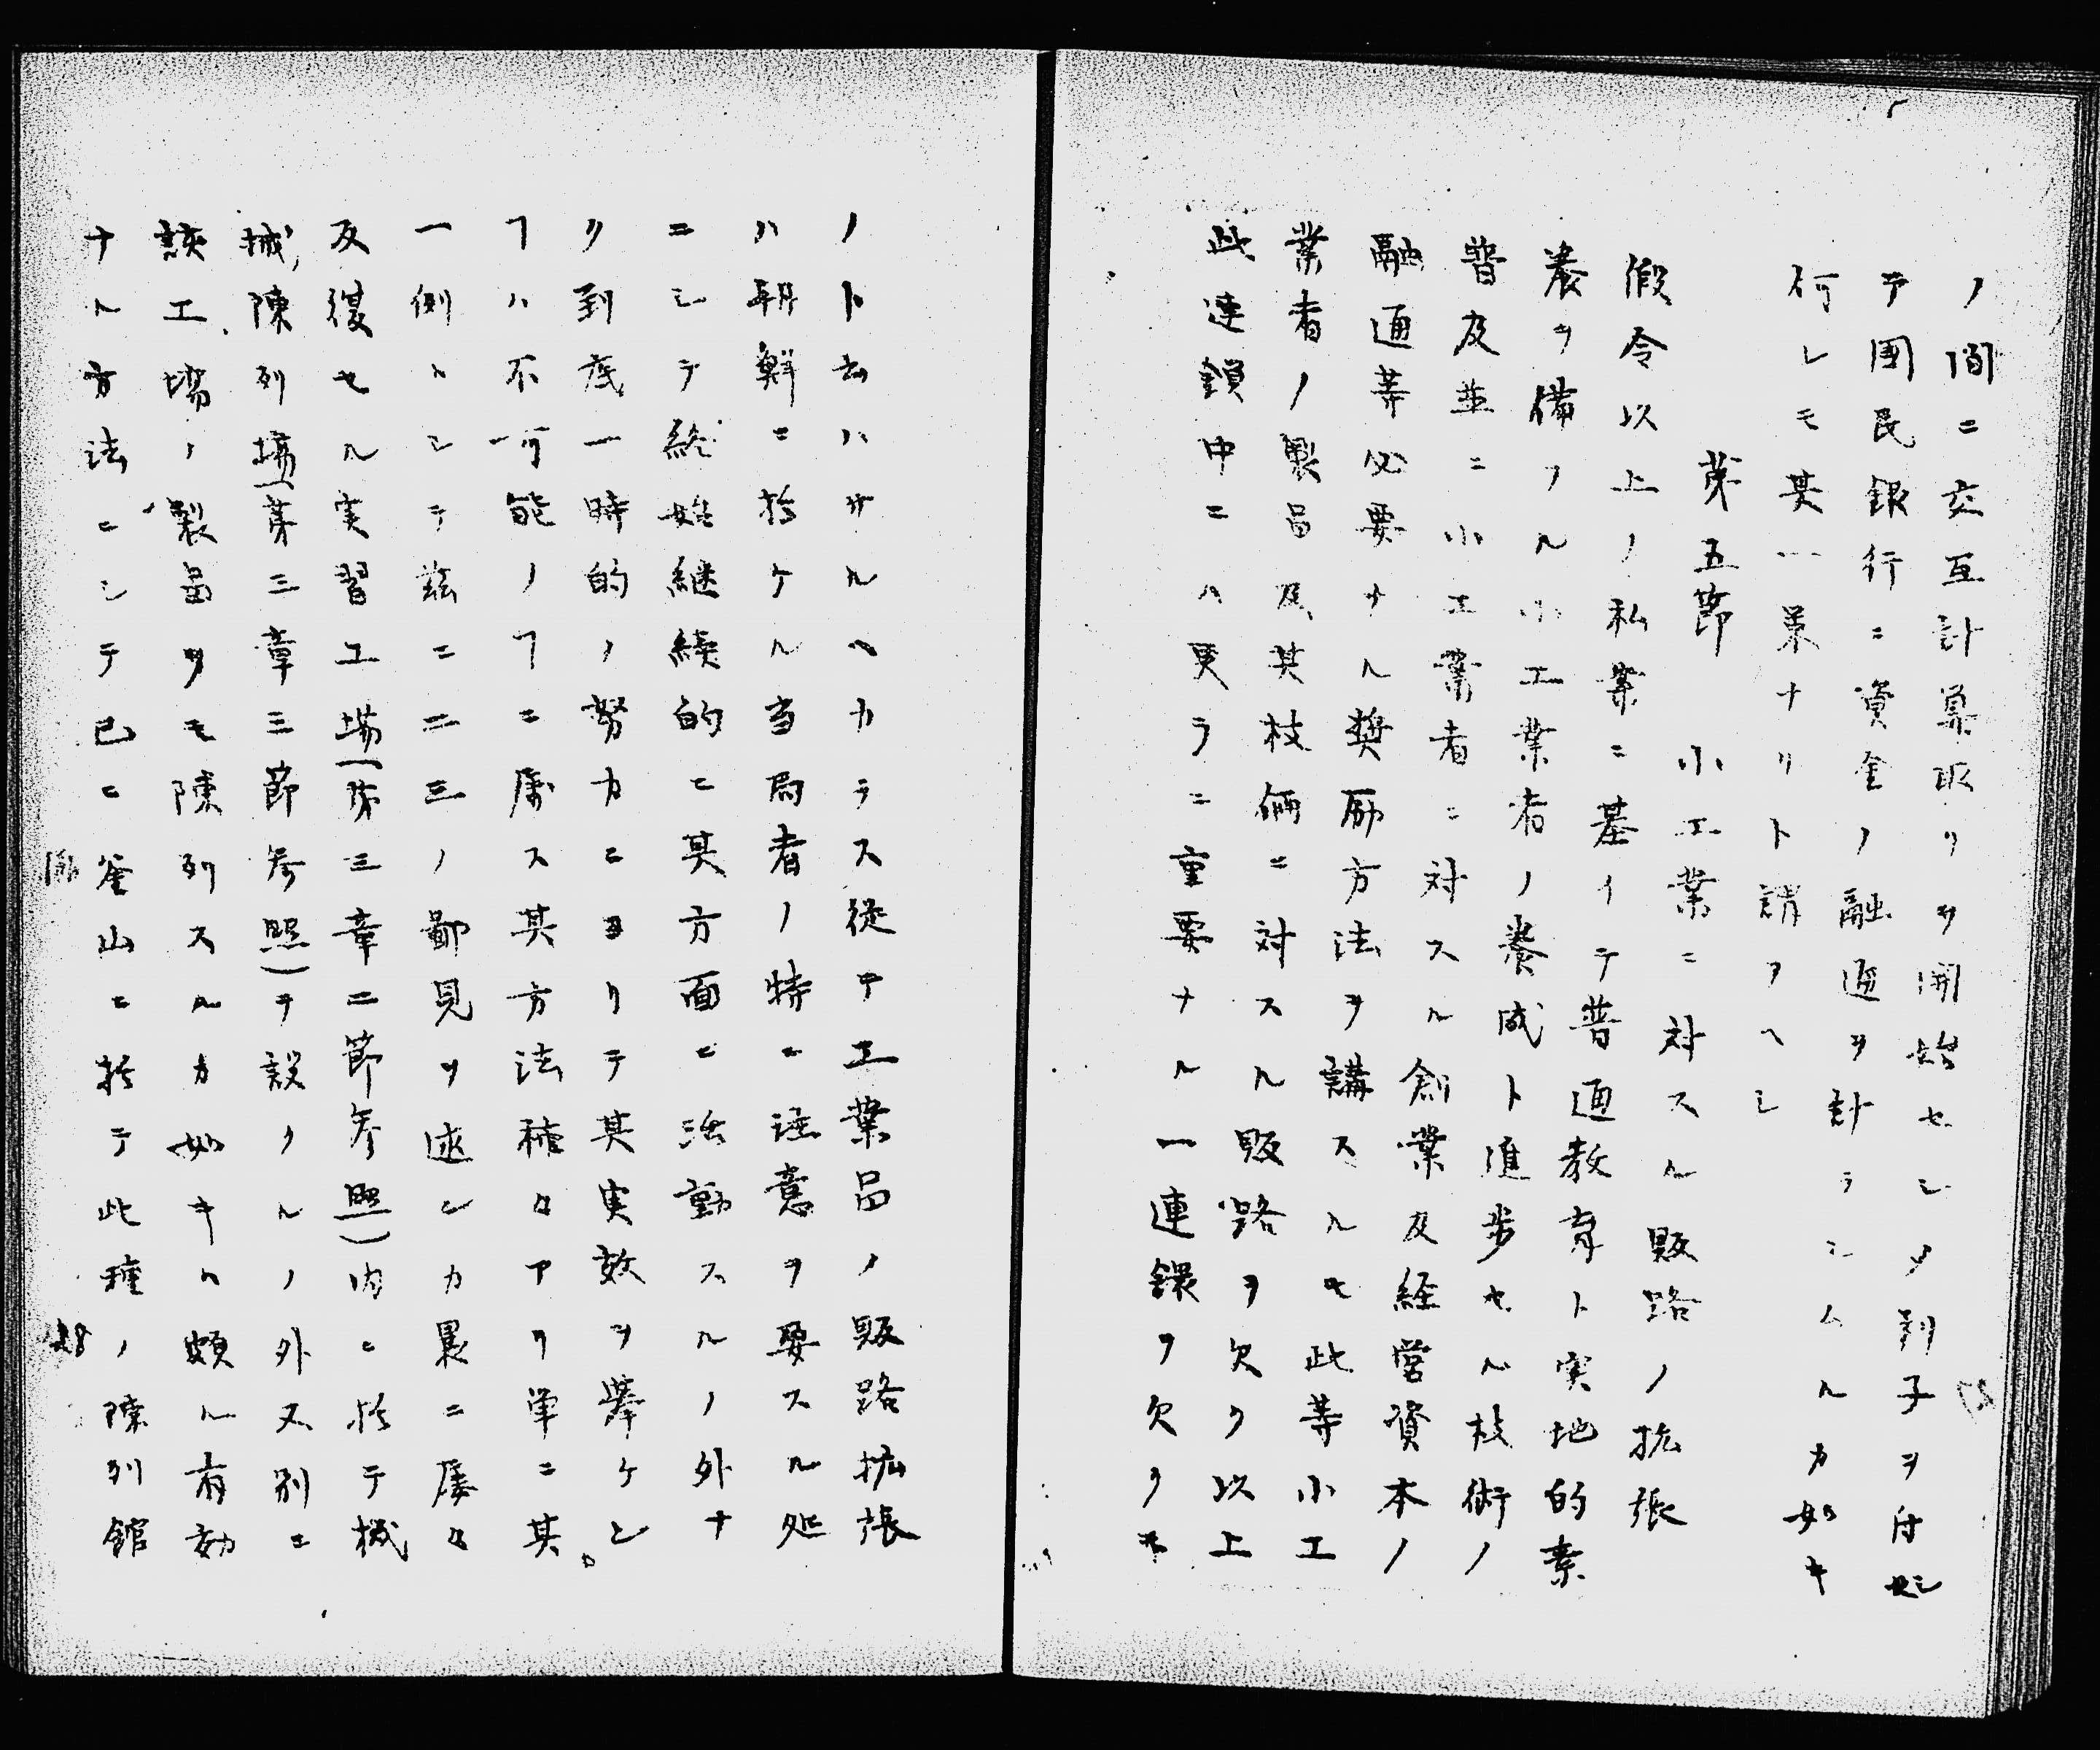 ノ間ニ交互計算取リヲ開始セシメ利子ヲ付セシ
テ国民銀行ニ資金ノ融通ヲ計ラシムルカ如キ
何レモ其一策ナリト謂フヘシ
第五節 小工業ニ対スル販路ノ拡張
仮令以上ノ私案ニ基イテ普通教育ト実地的素
養ヲ備フル小工業者ノ養成ト進歩セル技術ノ
普及並ニ小工業者ニ対スル創業及経営資本ノ
融通等必要ナル奨励方法ヲ講スルモ此等小工
業者ノ製品及其技倆ニ対スル販路ヲ欠ク以上
此連鎖中ニハ更ラニ重要ナル一連鐶ヲ欠クモ
ノト云ハサルヘカラス従テ工業品ノ販路拡張
ハ朝鮮ニ於ケル当局者ノ特ニ注意ヲ要スル処
ニシテ終始継続的ニ其方面ニ活動スルノ外ナ
ク到底一時的ノ努力ニヨリテ其実效ヲ挙ケン
ヿハ不可能ノヿニ属ス其方法種々アリ単ニ其
一例トシテ茲ニ二三ノ鄙見ヲ述ヘンカ曩ニ屡々
反復セル実習工場(第三章二節参照)内ニ於テ機
械陳列場(第三章三節参照)ヲ設クルノ外又別ニ
該工場ノ製品ヲモ陳列スルカ如キハ頗ル有効
ナル方法ニシテ已ニ釜山ニ於テ此種ノ陳列館